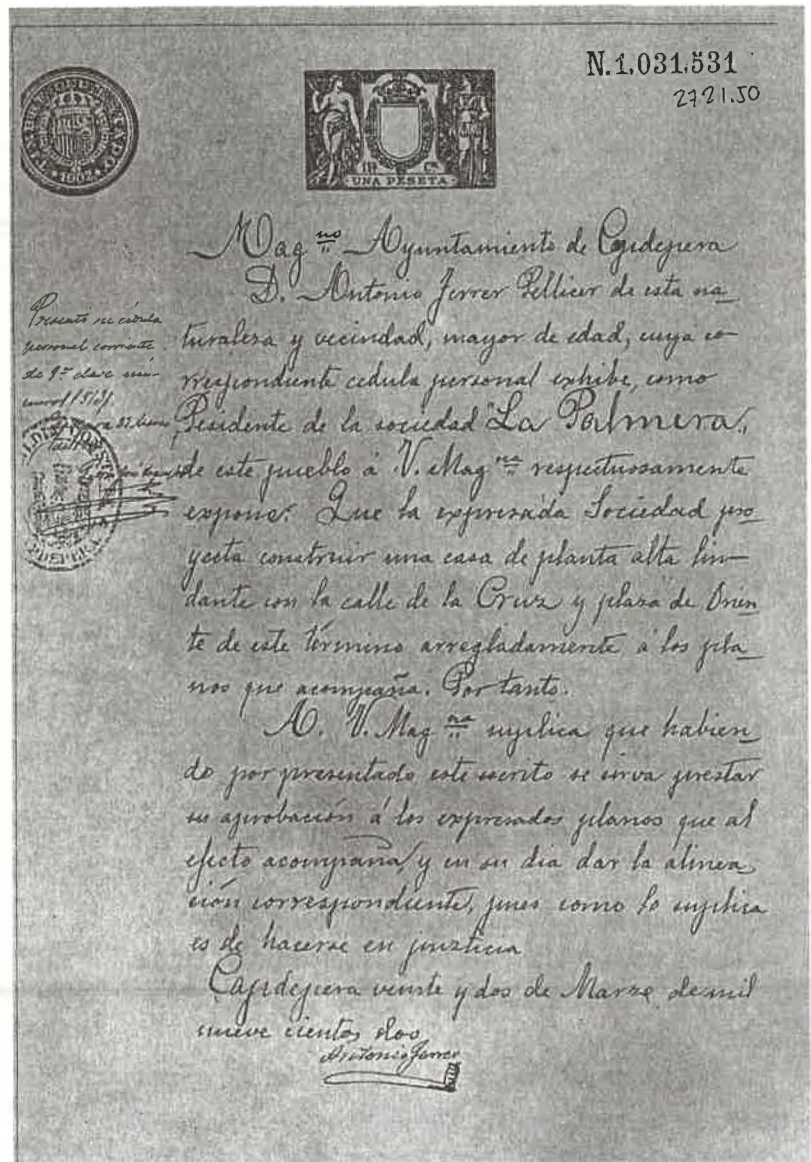 N.1,031,531
2721.50
TIMBRE DEL ESTADO
1902
UNA PESETA
Mag.no Ayuntamiento de Capdepera
D. Antonio Ferrer Pellicer de esta na_
turaleza y vecindad, mayor de edad, cuya co_
rrespondiente cedula personal exhibe, como
Presidente de la sociedad "La Palmera"
de este pueblo á V. Mag.na respetuosamente
expone: Que la expresada Sociedad pro_
yecta construir una casa de planta alta lin_
dante con la calle de la Cruz y plaza de Orien_
te de este término arregladamente á los pla_
nos que acompaña. Por tanto.
A. V. Mag.na suplica que habien_
do por presentado este escrito se sirva prestar
su aprobación á los expresados planos que al
efecto acompaña, y en su dia dar la alinea_
ción correspondiente, pues como lo suplica
es de hacerse en justicia
Capdepera veinte y dos de Marzo de mil
nueve cientos dos
Antonio Ferrer
Presentó su cédula
personal corriente
de 9ª clase nú-